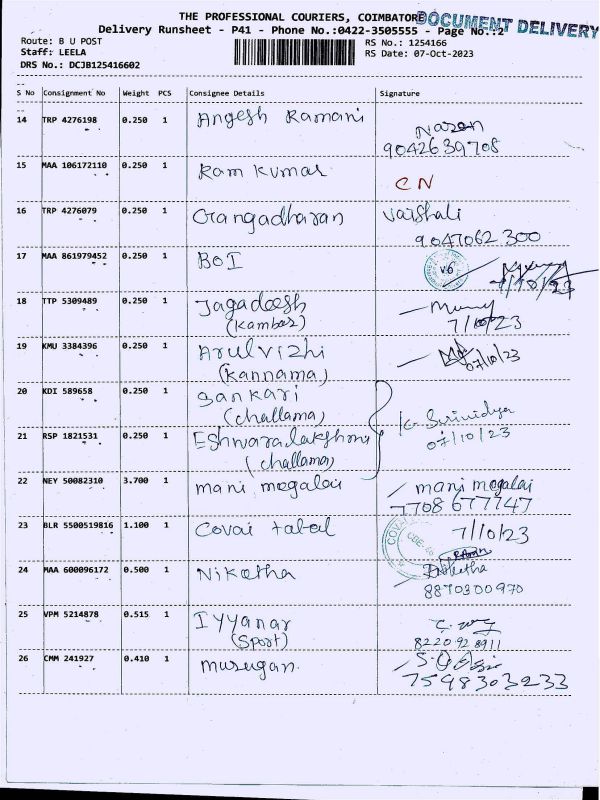 THE PROFESSIONAL COURIERS, COIMBATORE
DOCUMENT DELIVERY
Delivery Runsheet - P41 - Phone No.:0422-3505555 - Page No.:2
Route: B U POST
RS No.: 1254166
Staff: LEELA
RS Date: 07-Oct-2023
DRS No.: DCJB125416602
S No Consignment No Weight PCS Consignee Details Signature
14 TRP 4276198 0.250 1 Angesh Ramani Naren
9042639708
15 MAA 106172110 0.250 1 Ram Kumar CN
16 TRP 4276079 0.250 1 Gangadharan Vaishali
9047062300
17 MAA 861979452 0.250 1 BOI
7/10/23
18 TTP 5309489 0.250 1 Jagadeesh
(Kambar) 7/10/23
19 KMU 3384396 0.250 1 Arulvizhi
(Kannama) 07/10/23
20 KDI 589658 0.250 1 Sankari
(challama) K. Srividya
07/10/23
21 RSP 1821531 0.250 1 Eshwaralakshmi
(challama)
22 NEY 50082310 3.700 1 mani megalai mani megalai
7708677747
23 BLR 5500519816 1.100 1 Covai tabel 7/10/23
24 MAA 600096172 0.500 1 Niketha
8870300970
25 VPM 5214878 0.515 1 Iyyanar
(Sport) 8220928911
26 CMM 241927 0.410 1 murugan
7598303233